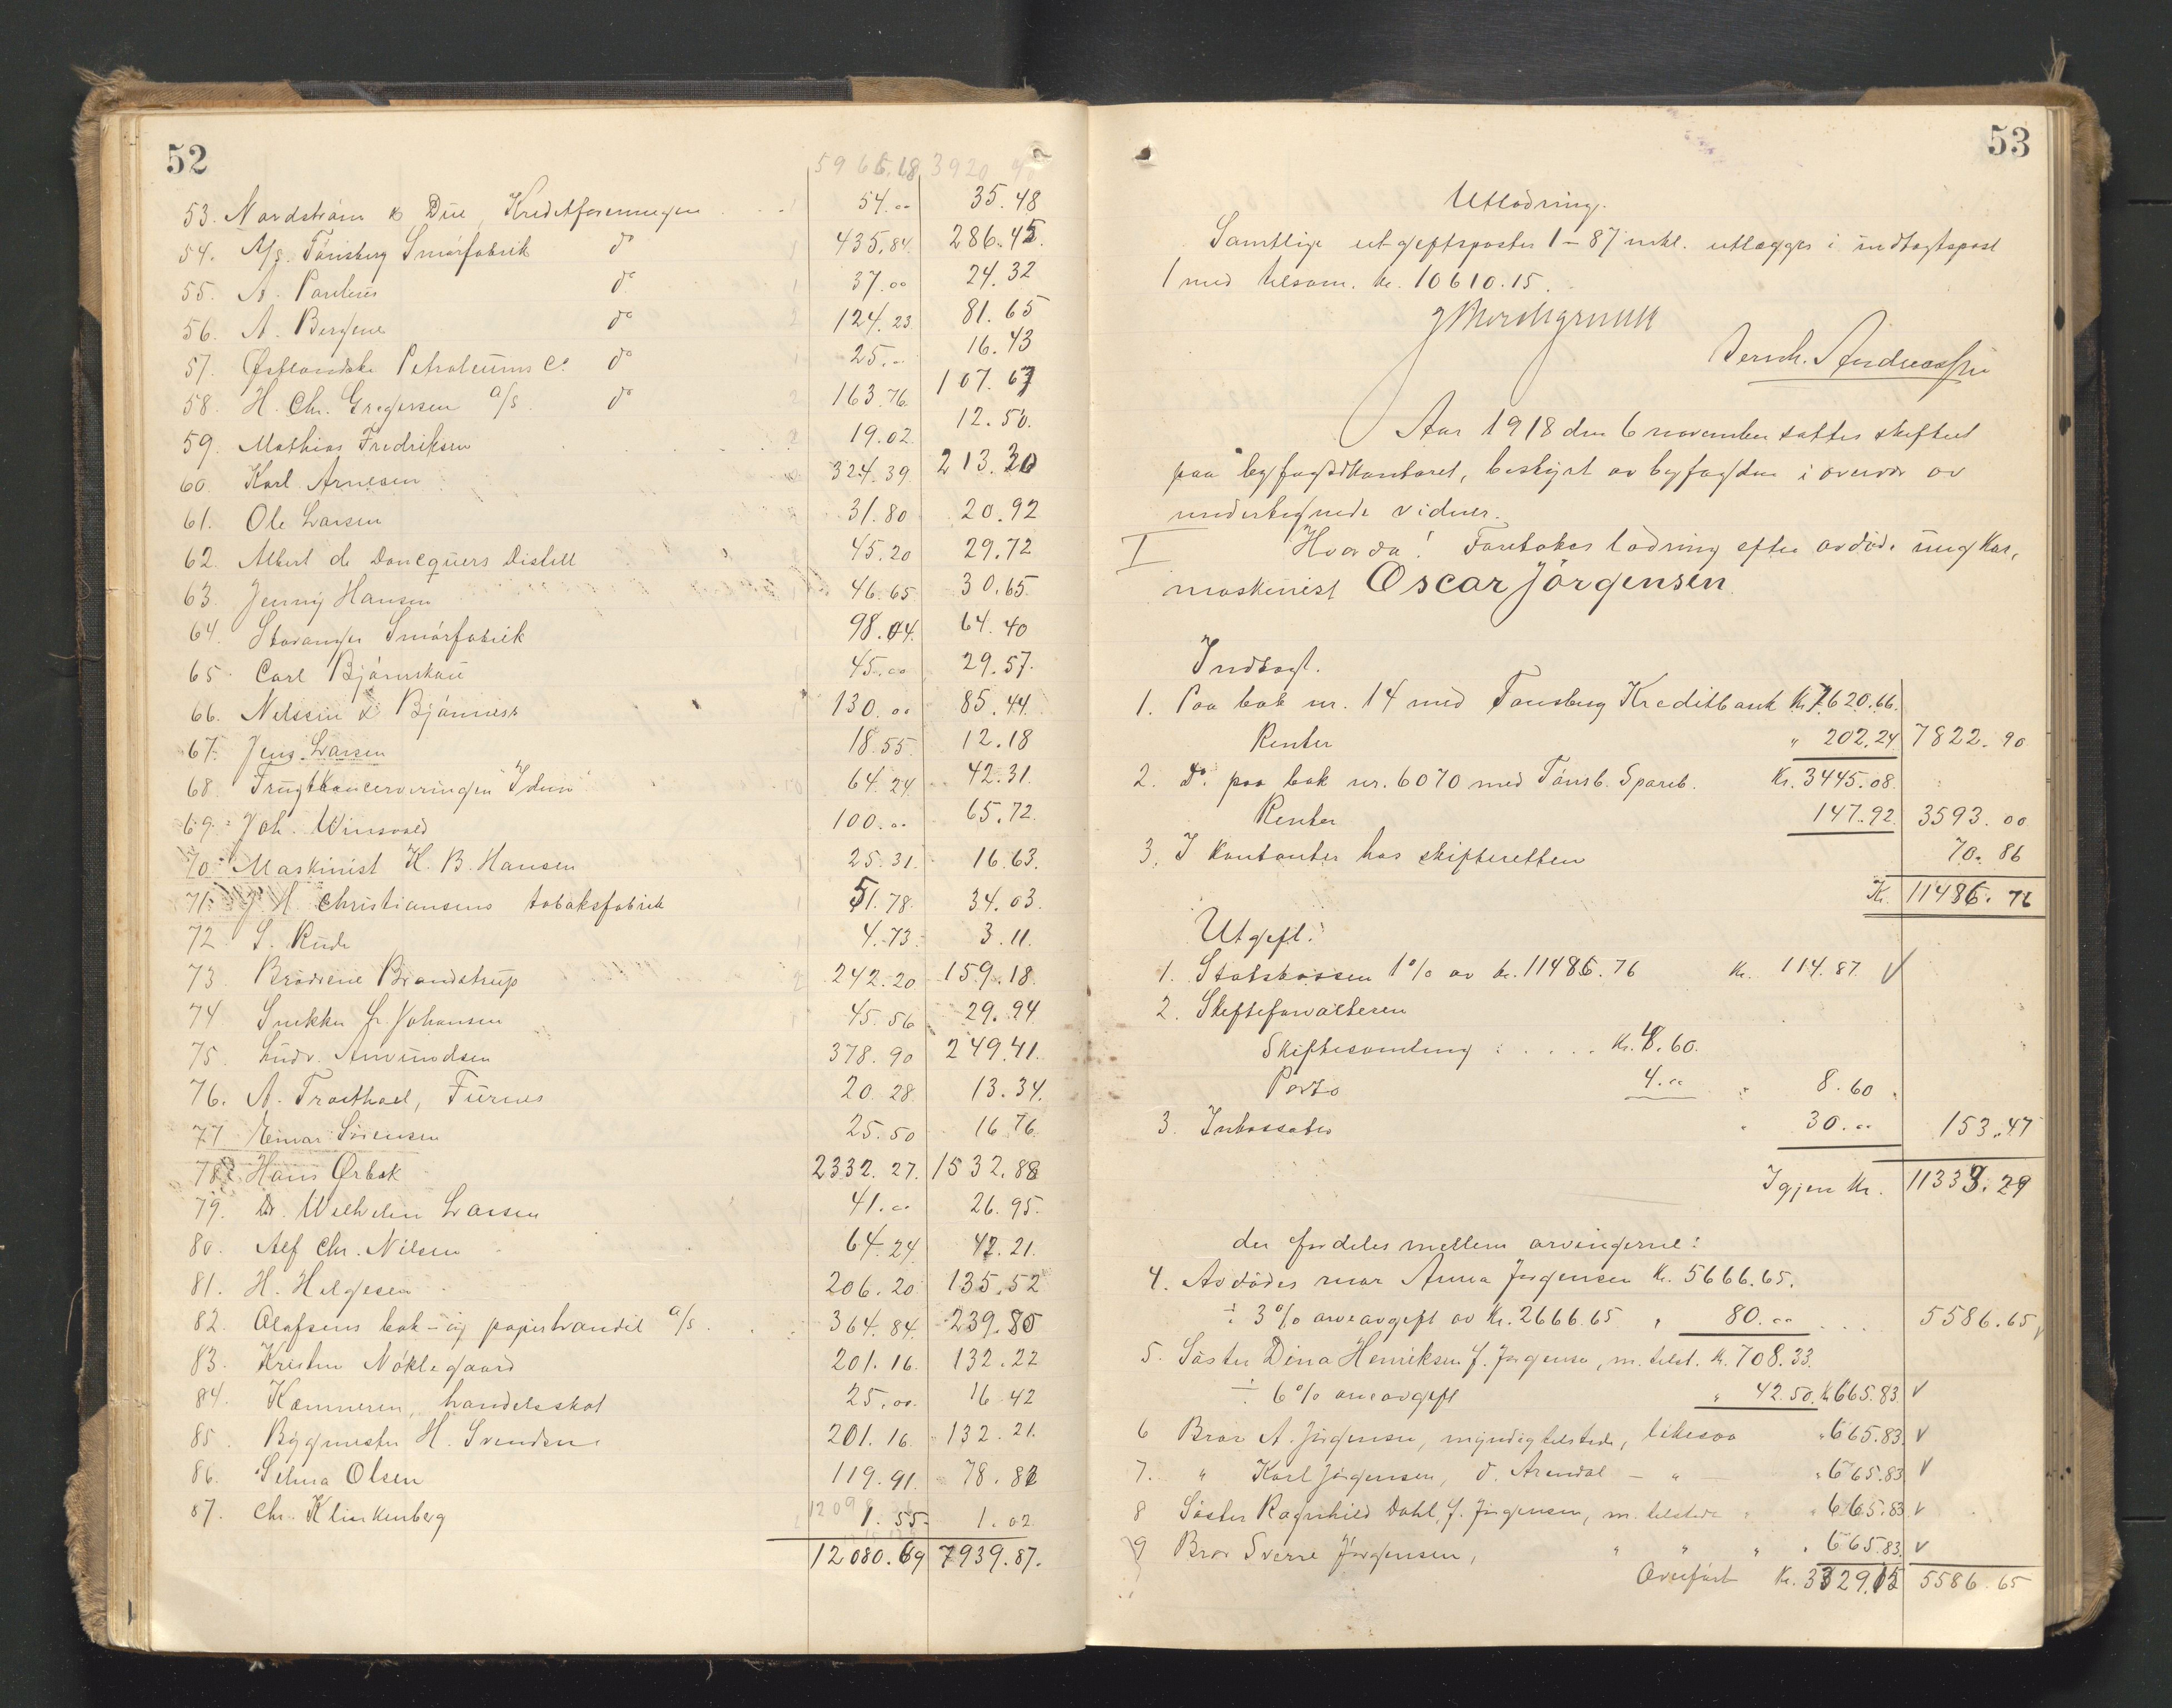 52
5966.18 3920
53. Nordström & Due, Kreditforeningen 54.00 35.48
54. A/s. Tönsberg Smörfabrik do 435.84 286.45
55. A. Paulsen do 37.00 24.32
56. A. Bergene do 124.23 81.65
57. Østlandske Petroleums Co. do 25.- 16.43
58. H. Chr. Gregersen A/s. do 163.76 107.67
59. Mathias Fredriksen 19.02 12.50
60 Karl Arnesen 324.39 213.20
61. Ole Larsen 31.80 20.92
62. Albert de Doncquers Distill 45.20 29.72
63. Jenny Hansen 46.65 30.65
64. Stavanger Smörfabrik 98.04 64.40
65. Carl Bjärnskau 45.00 29.57
66. Nelssen & Bjännesk 130.00 85.44
67. Jens Larsen 18.55 12.18
68. Frugtkonserveringen "Idun" 64.24 42.31
69. Joh. Winsvold 100.00 65.72
70. Maskinist K. B. Hansen 25.31 16.63
71. J. H. Christiansens tobaksfabrik 51.78 34.03
72. S. Rude 4.73 3.11
73. Brödrene Brandstrup 242.20 159.18
74 Snekker Fr. Johansen 45.56 29.94
75. Ludv. Amundsen 378.90 249.41
76. A. Trosthoel, Furnes 20.28 13.34
77 Einar Sörensen 25.50 16 76
78. Hans Ørbek 2332.27 1532.88
79. Dr. Wilhelm Larsen 41.00 26.95
80. Alf Chr. Nilsen 64.24 42.21
81. H. Helgesen 206.20 135.52
82. Olafsens bok- og papirhandel A/s. 364.84 239.85
83. Kristen Nöklegaard 201.16 132.22
84. Kæmneren, handelsskat 25.00 16.42
85. Bygmester H. Svendsen 201.16 132.21
86. Selma Olsen 119.91 78.82
87. Chr. Klinkenberg 1.55 1.02
12080.69 7939.87
53
Utlodning.
Samtlige utgiftsposter 1-87 inkl. utlægges i indtægtspost
1 med tilsam. kr. 10610.15.
Bernh. Andreassen
Aar 1918 den 6 november sattes skifteret
paa byfogdkontoret, bestyrt av byfogden i overvær av
undertegnede vidner.
I Hvorda! Foretokes lodning efter avdöde ungkar,
maskinist Oscar Jörgensen.
Indtægt.
1. Paa bok nr. 14 med Tönsberg Kreditbank Kr. 7620.66.
Renter " 202.24 7822.90
2. Do. paa bok nr. 6070 med Tönsb. Spareb. Kr. 3445.08.
Renter 147.92 3593.00
3. I kontanter hos skifteretten 70.86
Kr. 11486.76
Utgift:
1. Statskassen 1% av kr. 11486.76 kr. 114.87
2. Skifteforvalteren
Skiftesamling : . . . . Kr. 4.60.
Porto 4.00 8.60
3. Inkassator 30.00 153.47
Igjen Kr. 11333.29
der fordeles mellem arvingerne:
4. Avdödes mor Anna Jörgensen Kr. 5666.65.
÷ 3% arveavgift av Kr. 2666.65 " 80.00 5586.65
5. Söster Dina Henriksen f. Jörgensen, m. tilst. Kr. 708.33.
÷ 6% arveavgift " 42.50 Kr. 665.83
6 Bror A. Jörgensen, myndig tilstede, likesaa " 665.83
7. " Karl Jörgensen, d. Arendal - " " 665.83
8 Söster Ragnhild Dahl, f. Jörgensen, m. tilstede " " 665.83
9 Bror Sverre Jörgensen, " " " " 665.83
Overfört Kr. 3329.15 5586.65